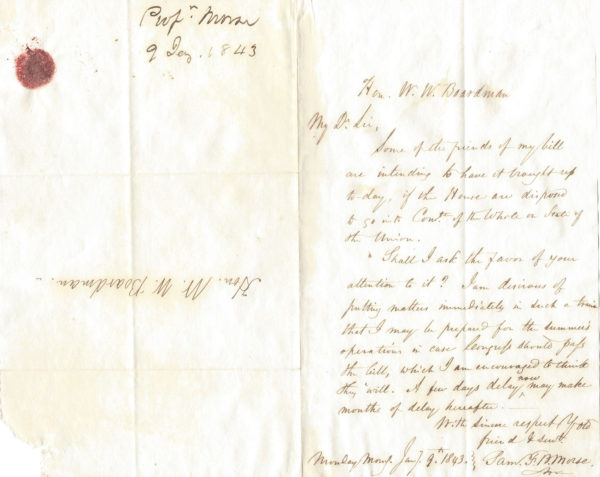 Profr. Morse
9 Jany. 1843
Hon. W. W. Boardman.
Hon. W. W. Boardman
My Dr. Sir,
Some of the friends of my bill
are intending to have it brought up
to-day, if the House are disposed
to go into Comte. of the Whole on State of
the Union.
Shall I ask the favor of your
attention to it? I am desirous of
putting matters immediately in such a train
that I may be prepared for the summer's
operations in case Congress should pass
the bill, which I am encouraged to think
they will. A few days delay now may make
months of delay hereafter.
With sincere respect Yr old
friend & servt.
Monday Morng. Jany. 9th. 1843. Saml. F. B. Morse.